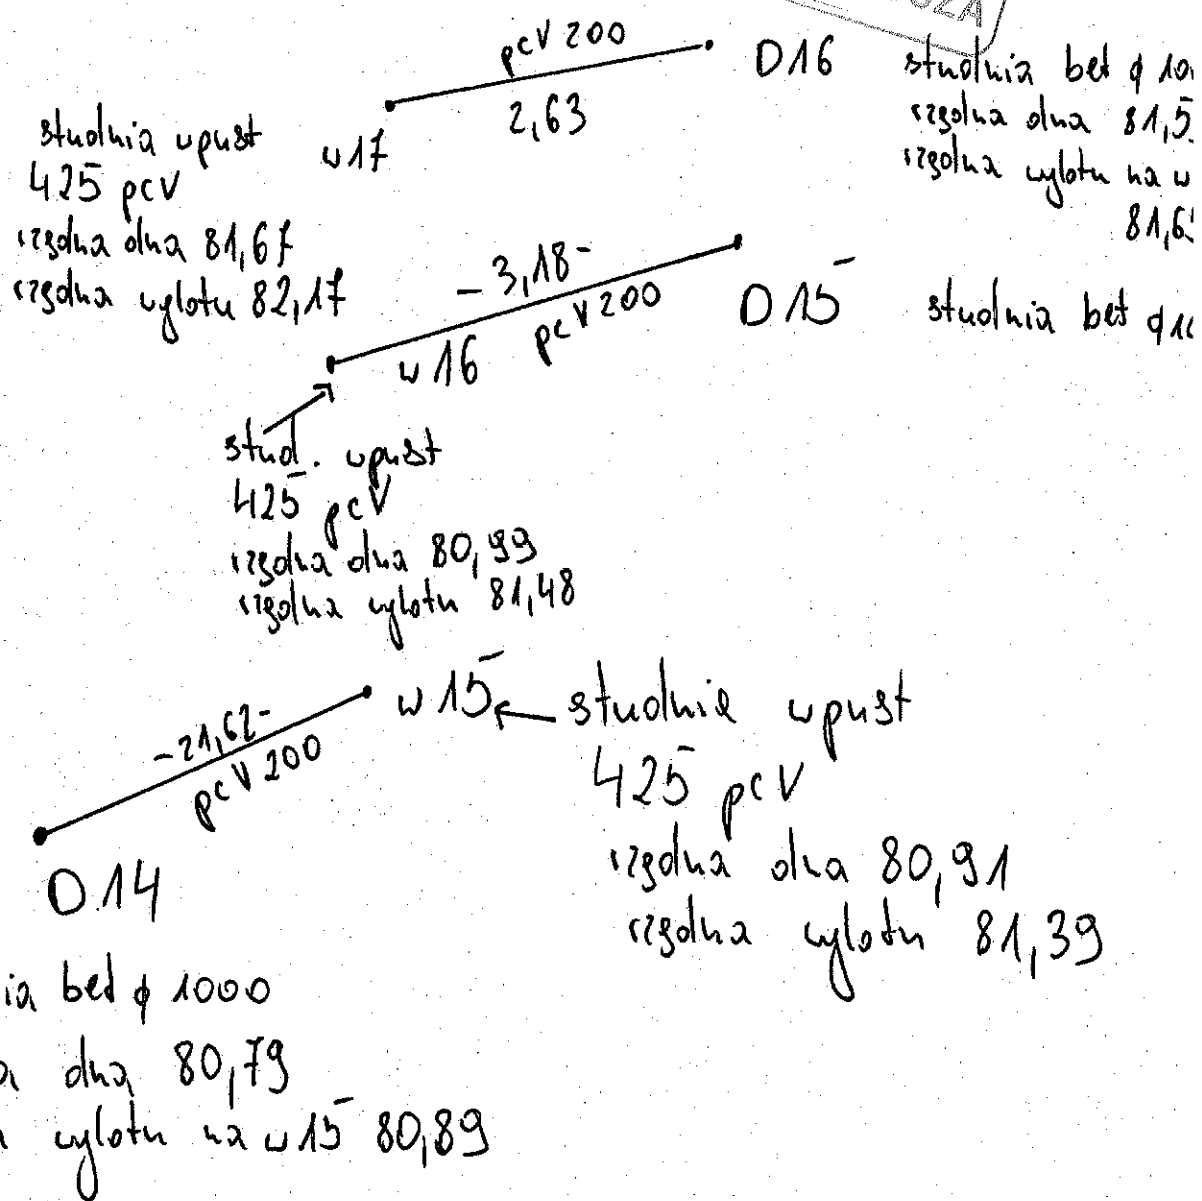 pcV 200
2,63
w17
D16
studnia bet φ 10
rzędna dna 81,5
rzędna wylotu na w
81,6
studnia wpust
425 pcV
rzędna dna 81,67
rzędna wylotu 82,17
-3,18-
pcV 200
w16
D15
studnia bet φ 1
stud. wpust
425 pcV
rzędna dna 80,99
rzędna wylotu 81,48
-21,62-
pcV 200
w15
studnia wpust
425 pcV
rzędna dna 80,91
rzędna wylotu 81,39
D14
ia bet φ 1000
a dna 80,79
wylotu na w15 80,89